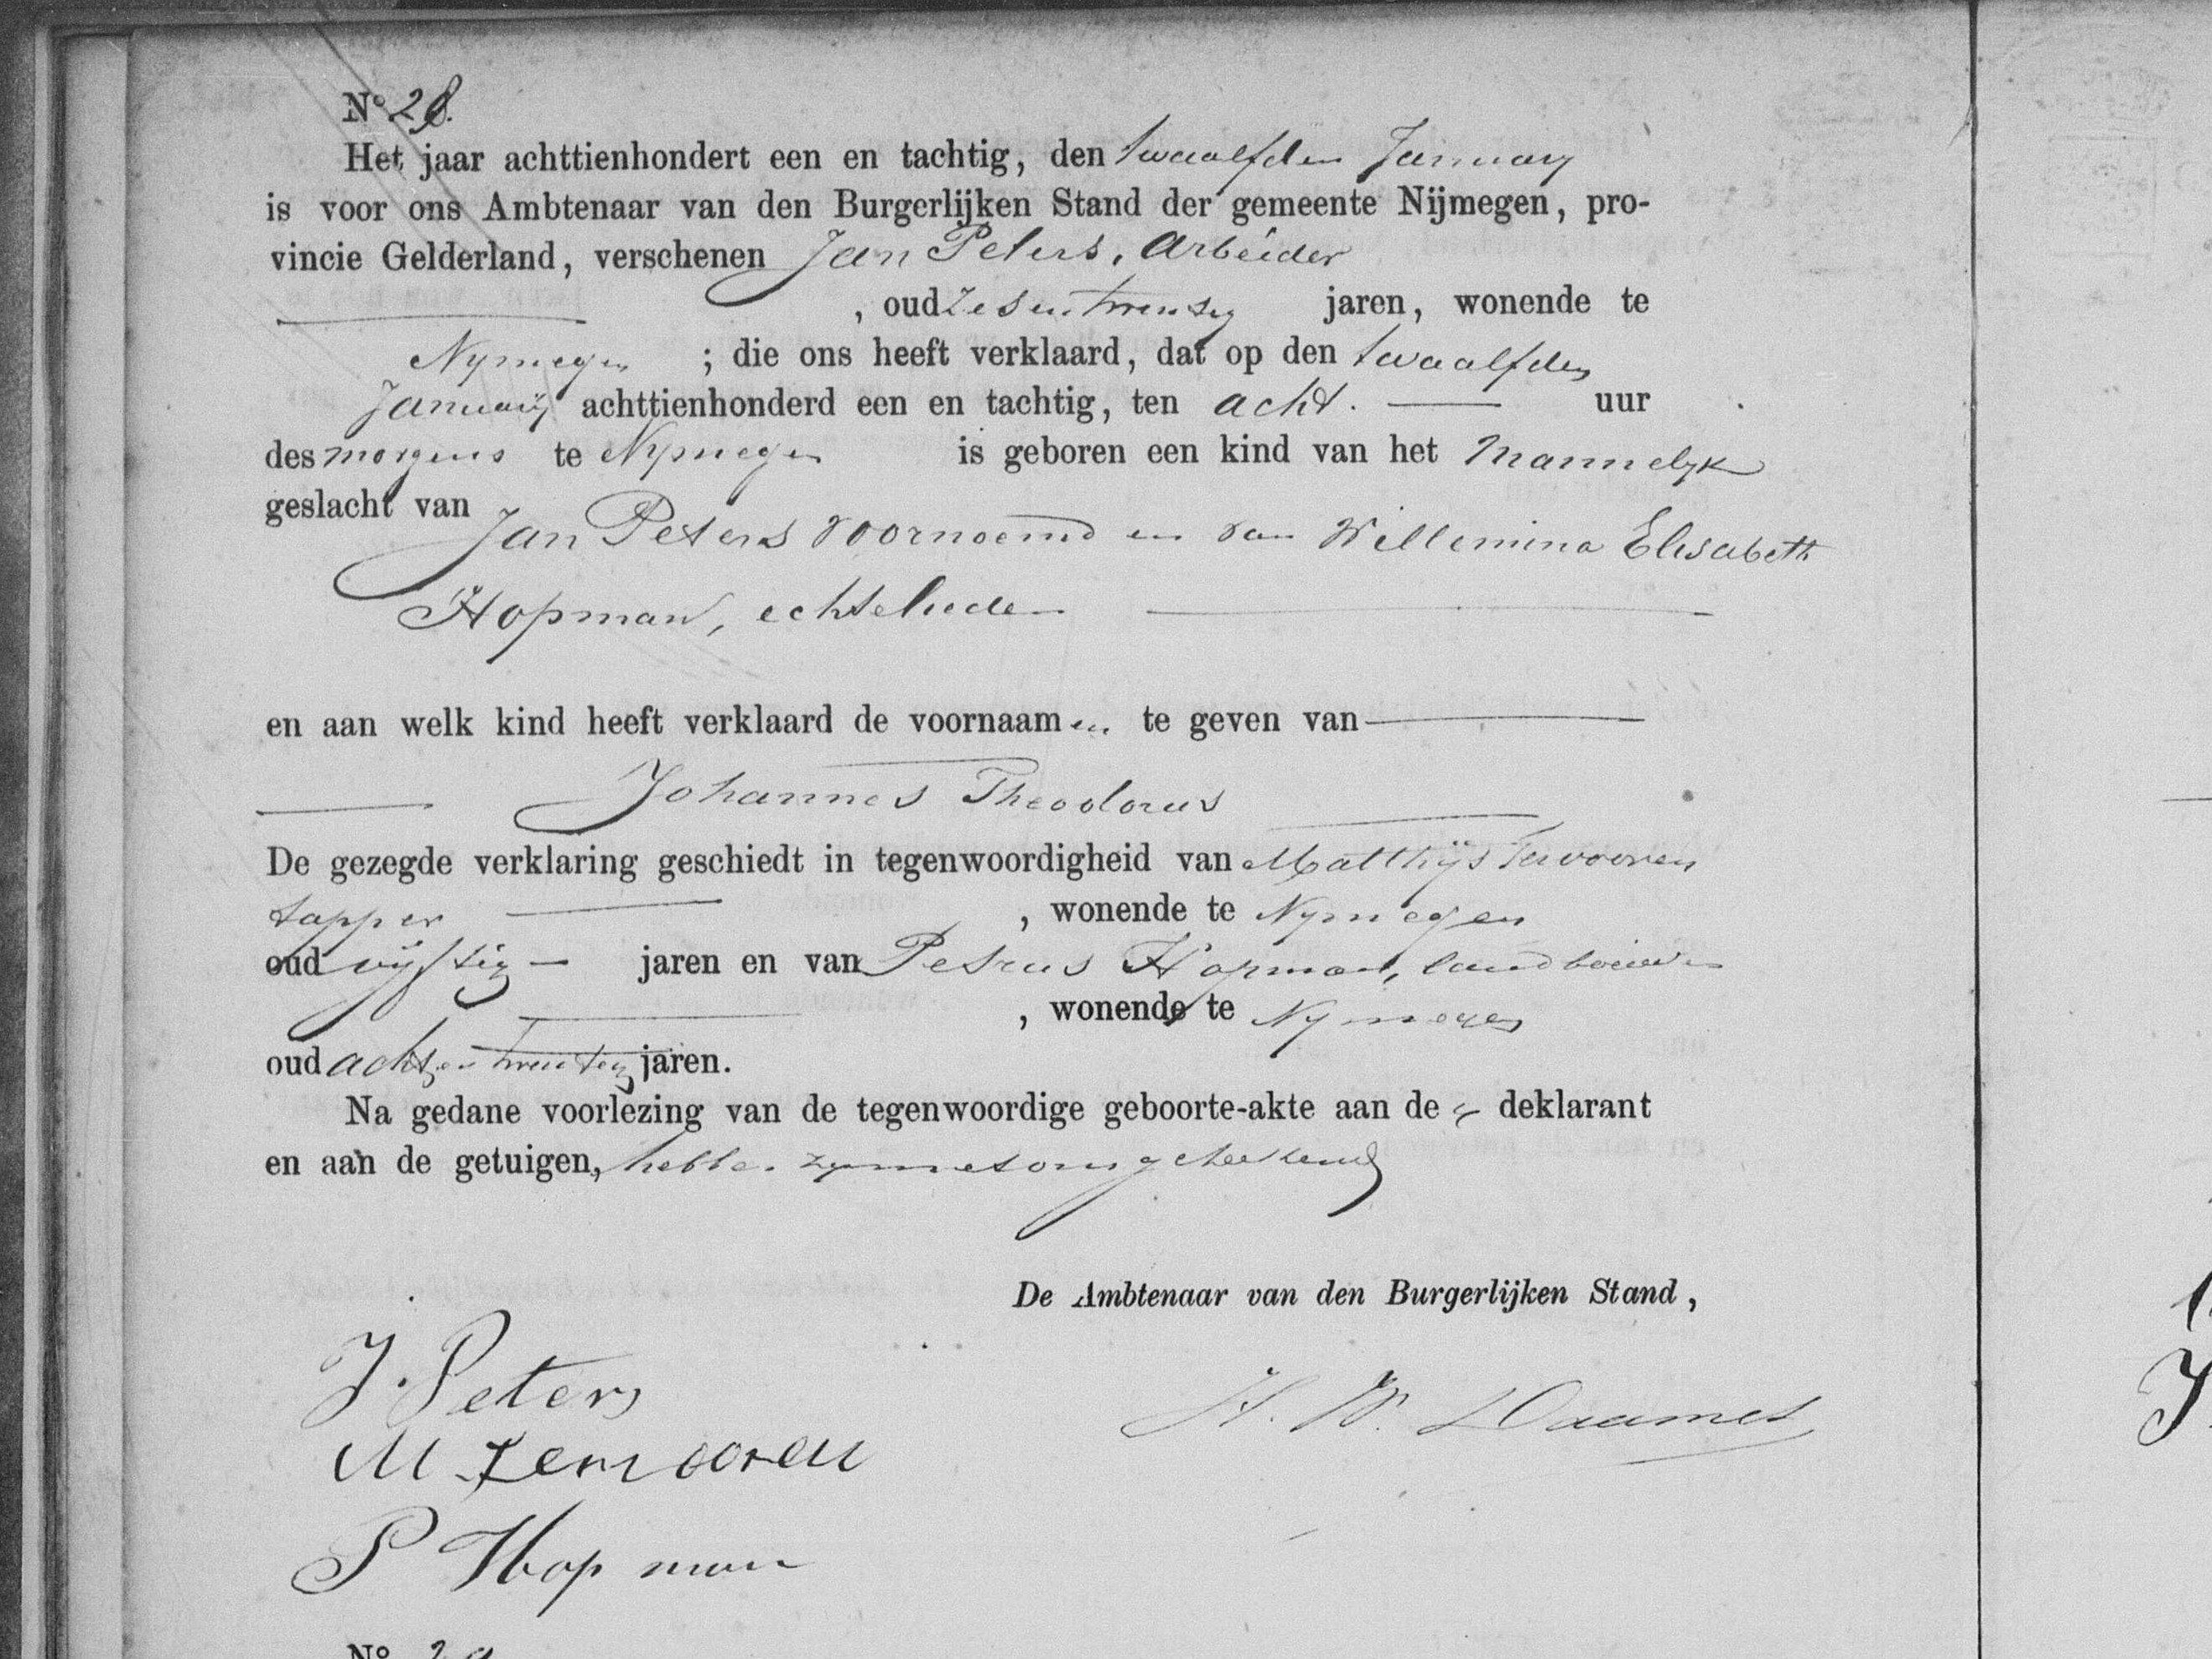 No 28.
Het jaar achttienhondert een en tachtig, den twaalfden January
is voor ons Ambtenaar van den Burgerlijken Stand der gemeente Nijmegen, pro-
vincie Gelderland, verschenen Jan Peters, Arbeider
, oud zesentwintig jaren, wonende te
Nymegen ; die ons heeft verklaard, dat op den twaalfden
January achttienhonderd een en tachtig, ten acht. uur
des morgens te Nymegen is geboren een kind van het Mannelyk
geslacht van
Jan Peters voornoemd en van Willemina Elisabeth
Hopman, echtelieden
en aan welk kind heeft verklaard de voornaamen te geven van
Johannes Theodorus
De gezegde verklaring geschiedt in tegenwoordigheid van Matthijs Tervooren
tapper , wonende te Nymegen
oud vijftig jaren en van Petrus Hopman, landbouwer
, wonende te Nymegen
oud achtentwintig jaren.
Na gedane voorlezing van de tegenwoordige geboorte-akte aan de deklarant
en aan de getuigen, hebben zy met ons geteekend
De Ambtenaar van den Burgerlijken Stand,
J. Peters
H. W. Daames
M Tervooren
P Hopman
No 29